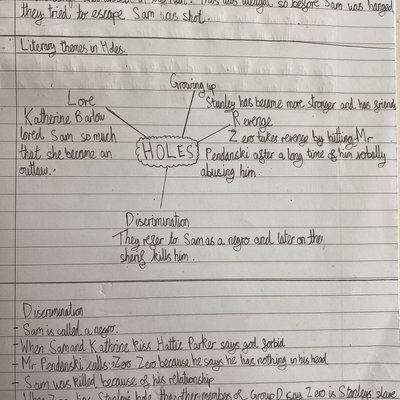 so before Sam was hanged
they tried to escape Sam was shot.
Literary themes in Holes.
Growing up
Stanley has became more stronger and has friends
Love
Katherine Barlow
loved Sam so much
that she became an
outlaw.
HOLES
Revenge
Zero takes revenge by hitting Mr
Pendanski after a long time of him verbally
abusing him.
Discrimination
They refer to Sam as a negro and later on the
sherif kills him.
Discrimination
- Sam is called a negro.
- When Sam and Kathrine kiss Hattie Parker says god forbid
- Mr Pendanski calls Zero Zero because he says he has nothing in his head
- Sam was killed because of his relationship
- When Zero digs Stanleys hole the other members of Group D say Zero is Stanleys slave